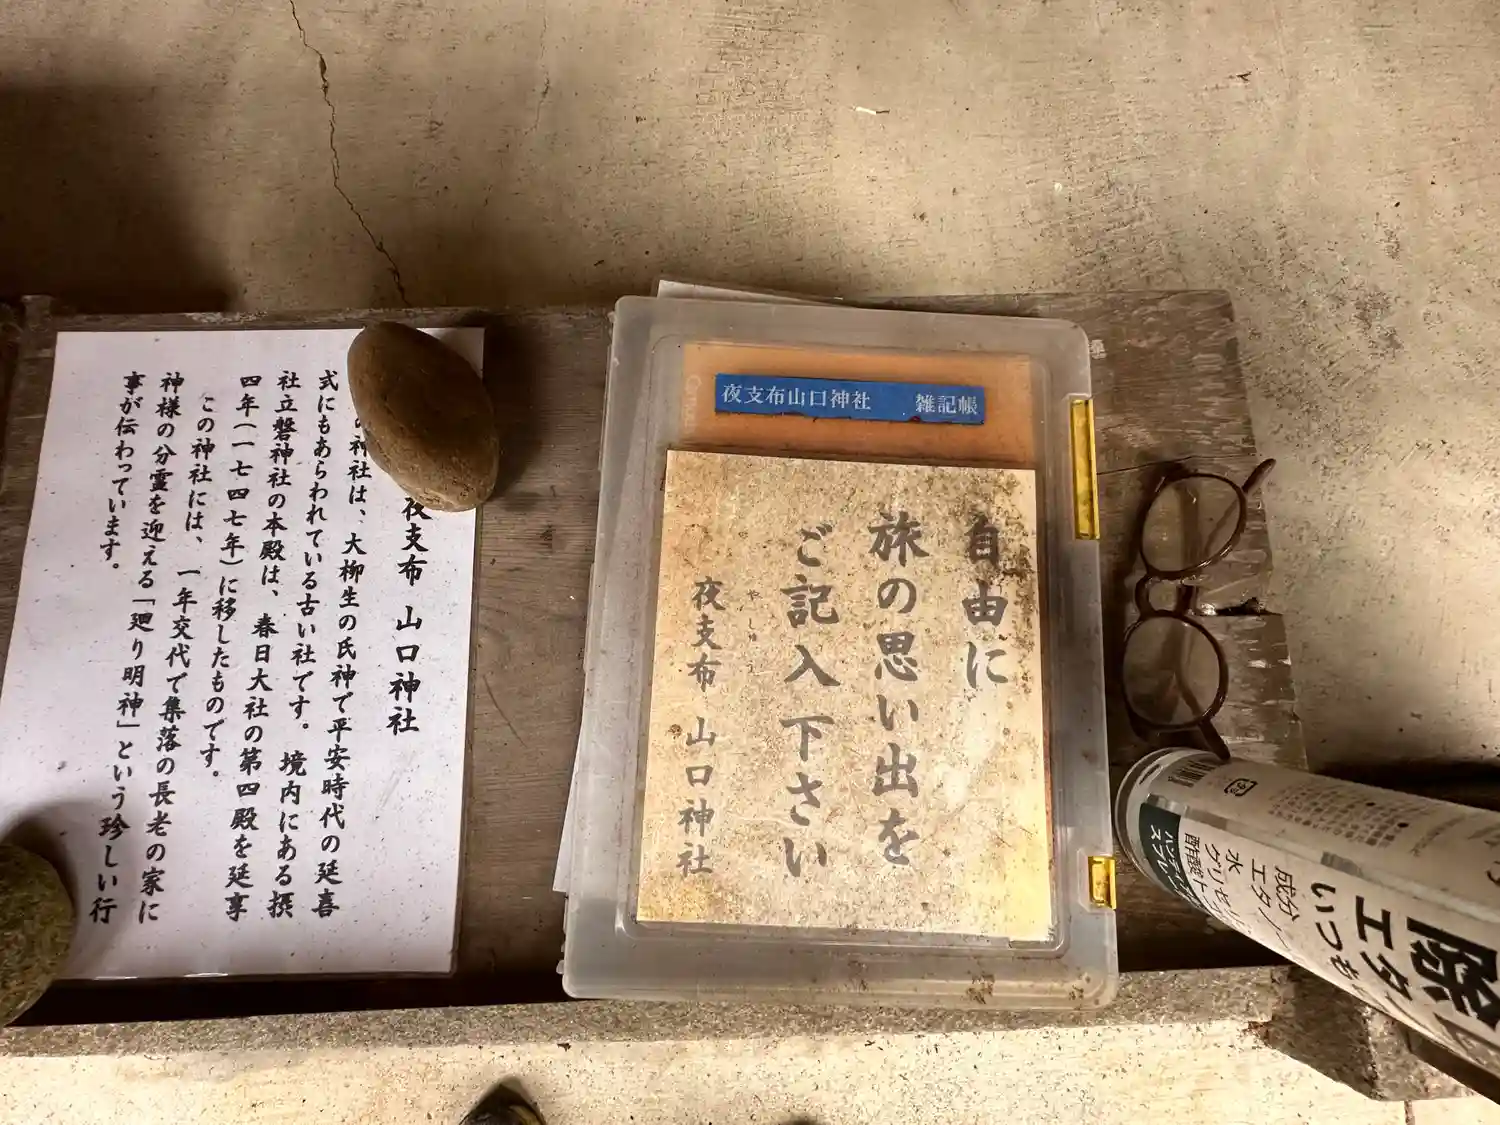 夜支布 山口神社
神社は、大柳生の氏神で平安時代の延喜
式にもあらわれている古い社です。 境内にある摂
社立磐神社の本殿は、春日大社の第四殿を延享
四年(一七四七年)に移したものです。
この神社には、一年交代で集落の長老の家に
神様の分霊を迎える「廻り明神」という珍しい行
事が伝わっています。
夜支布山口神社 雑記帳
自由に
旅の思い出を
ご記入下さい
やしゅう
夜支布 山口神社
除
エタ
いつも
成分
エタノ
水
グリセリ